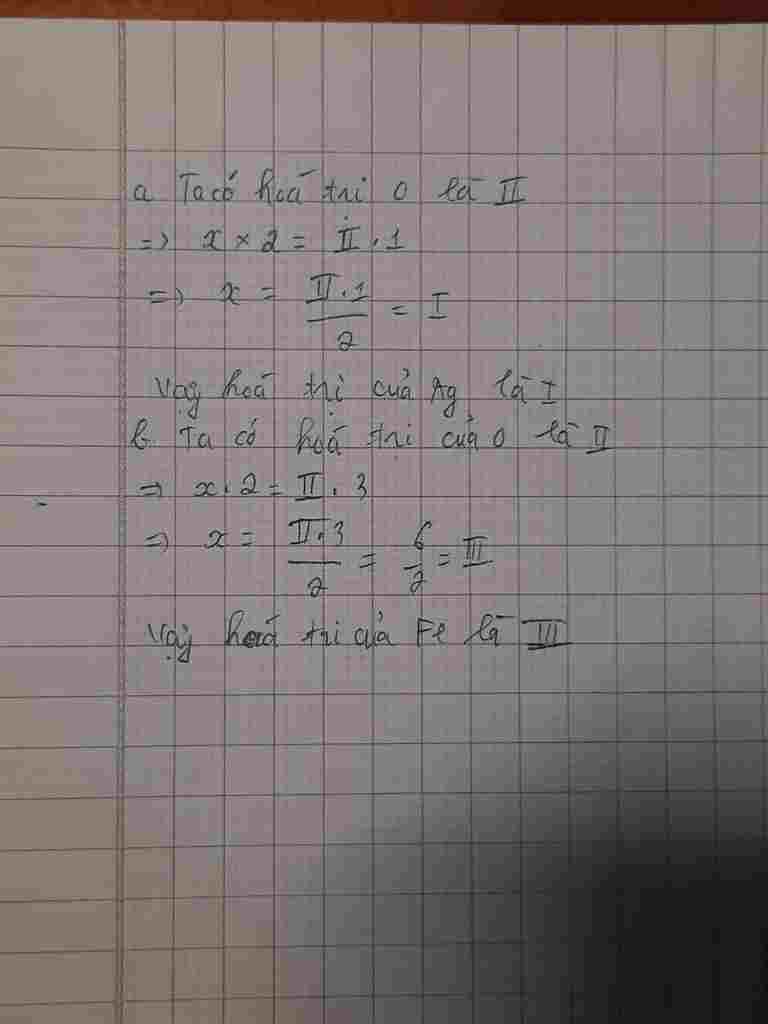 a Ta có hoá tri O là II
=> x × 2 = II . 1
=> x = II.1/2 = I
Vậy hoá trị của Ag là I
b. Ta có hoá trị của O là II
=> x . 2 = II . 3
=> x = II.3/2 = 6/2 = III
Vậy hoá tri của Fe là III